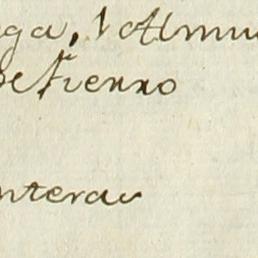 ga, 1 Almu
de fierro
nteras